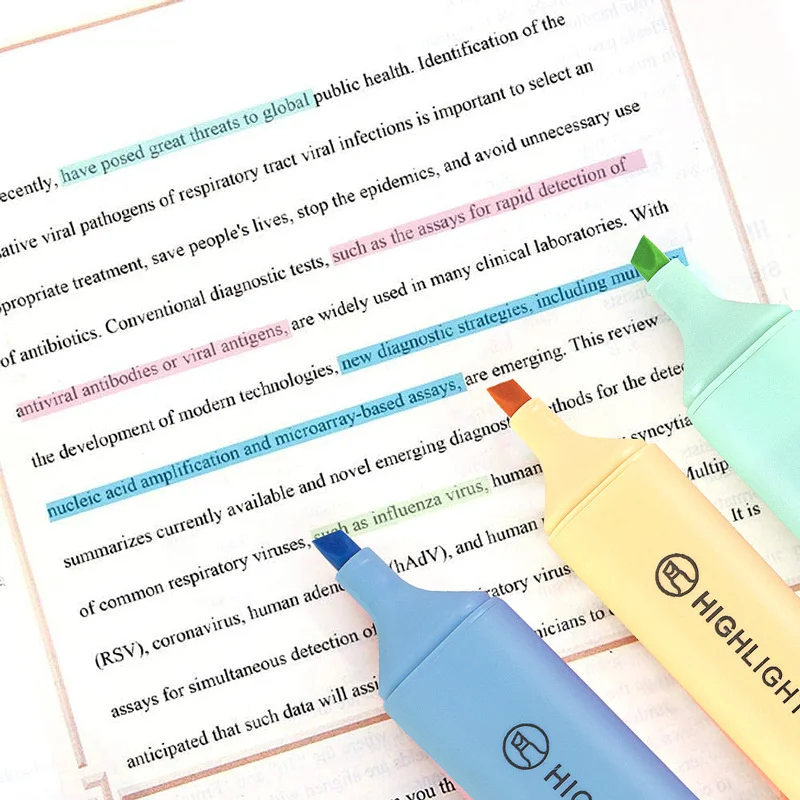 ecently, have posed great threats to global public health. Identification of the
ative viral pathogens of respiratory tract viral infections is important to select an
propriate treatment, save people's lives, stop the epidemics, and avoid unnecessary use
of antibiotics. Conventional diagnostic tests, such as the assays for rapid detection of
antiviral antibodies or viral antigens, are widely used in many clinical laboratories. With
the development of modern technologies, new diagnostic strategies, including mul
nucleic acid amplification and microarray-based assays, are emerging. This review
summarizes currently available and novel emerging diagnost ethods for the detec
of common respiratory viruses, such as influenza virus, human syncytia
(RSV), coronavirus, human aden (hAdV), and human Multip
assays for simultaneous detection of ratory virus It is
anticipated that such data will assi nicians to
n you th
HIGHLIGHT
HIG